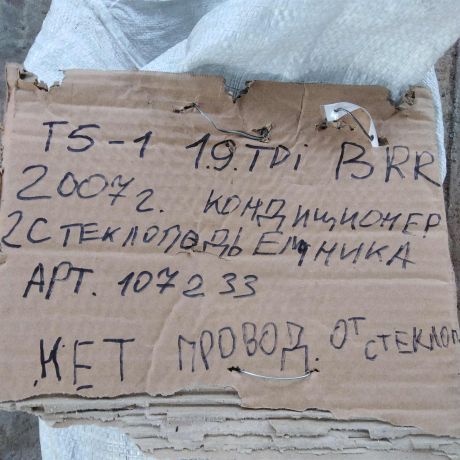 T5-1 1.9.TDi BRR
2007г. КОНДИЦИОНЕР
2 СТЕКЛОПОДЬЕМНИКА
АРТ. 107233
НЕТ ПРОВОД. ОТ СТЕКЛОП